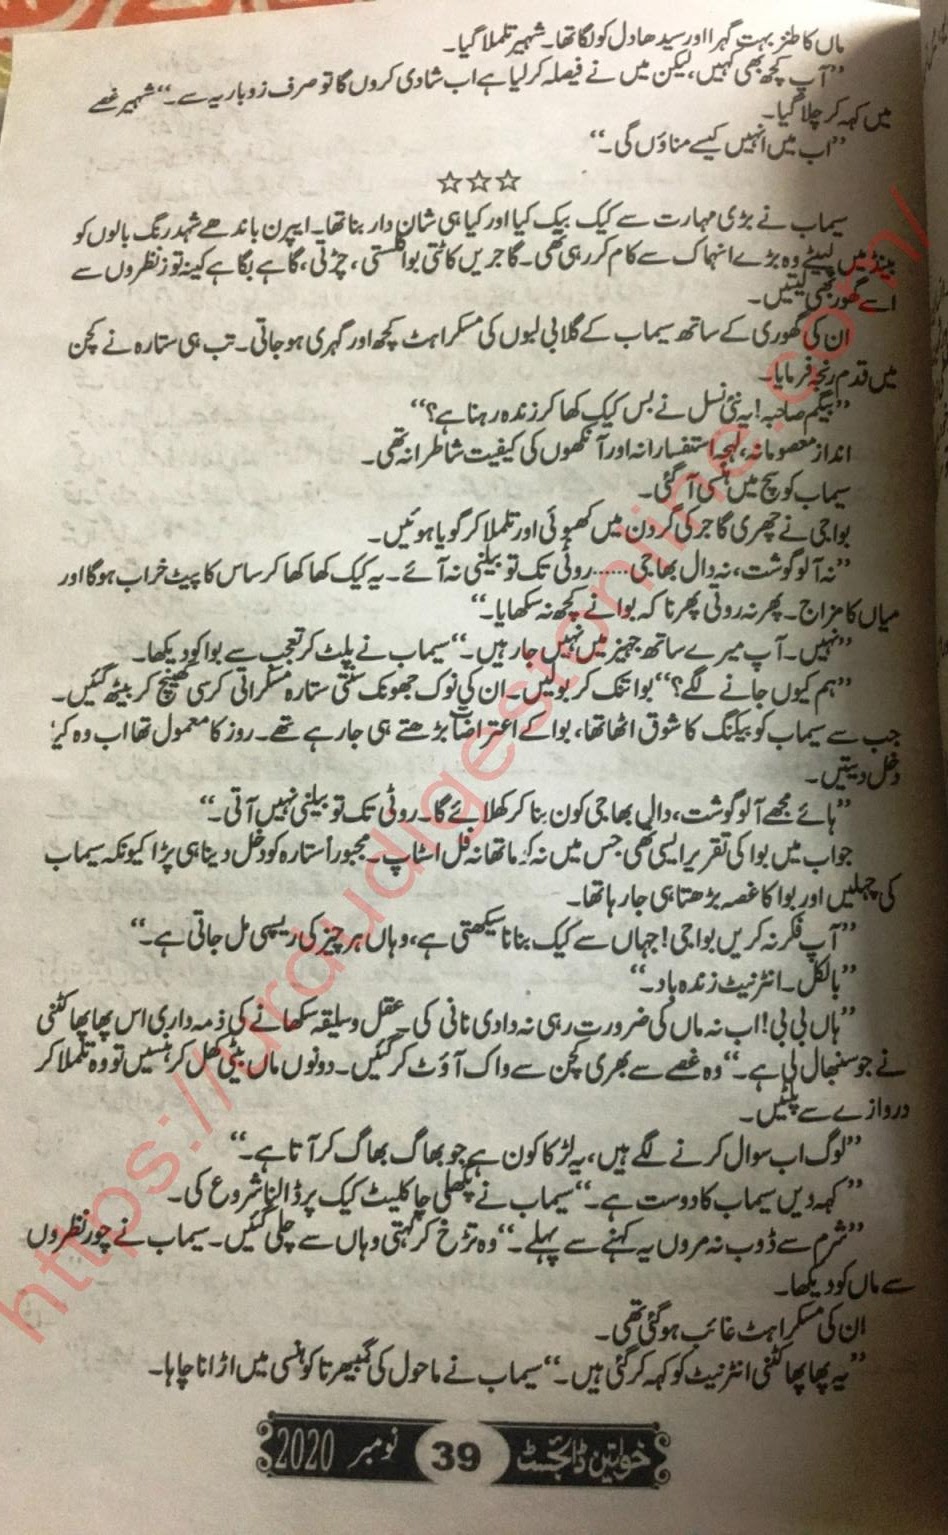 ماں کا طنز بہت گہرا اور سیدھا دل کو لگا تھا۔ شہیر تلملا گیا۔
’’آپ کچھ بھی کہیں، لیکن میں نے فیصلہ کر لیا ہے اب شادی کروں گا تو صرف زوباریہ سے۔‘‘ شہیر غصے
میں کہہ کر چلا گیا۔
’’اب میں انہیں کیسے مناؤں گی۔‘‘
☆☆☆
سیماب نے بڑی مہارت سے کیک بیک کیا اور کیا ہی شان دار بنا تھا۔ ایپرن باندھے شہد رنگ بالوں کو
بینڈ میں لپیٹے وہ بڑے انہماک سے کام کر رہی تھی۔ گاجریں کاٹتی بوا کلستی، چڑتی، گاہے بگاہے کینہ توز نظروں سے
اسے گھور بھی لیتیں۔
ان کی گھوری کے ساتھ سیماب کے گلابی لبوں کی مسکراہٹ کچھ اور گہری ہو جاتی۔ تب ہی ستارہ نے کچن
میں قدم رنجہ فرمایا۔
’’بیگم صاحبہ! یہ نئی نسل نے بس کیک کھا کر زندہ رہنا ہے؟‘‘
انداز معصومانہ، لہجہ استفسارانہ اور آنکھوں کی کیفیت شاطرانہ تھی۔
سیماب کو سچ میں ہنسی آ گئی۔
بوا جی نے چھری گاجر کی گردن میں کھبوئی اور تلملا کر گویا ہوئیں۔
’’نہ آلو گوشت، نہ دال بھاجی...... روٹی تک تو بیلنی نہ آئے۔ یہ کیک کھا کھا کر ساس کا پیٹ خراب ہوگا اور
میاں کا مزاج۔ پھر نہ روتی پھرنا کہ بوا نے کچھ نہ سکھایا۔‘‘
’’نہیں۔ آپ میرے ساتھ جہیز میں نہیں جا رہیں۔‘‘ سیماب نے پلٹ کر تعجب سے بوا کو دیکھا۔
’’ہم کیوں جانے لگے؟‘‘ بوا تنک کر بولیں۔ ان کی نوک جھونک سنتی ستارہ مسکراتی کرسی کھینچ کر بیٹھ گئیں۔
جب سے سیماب کو بیکنگ کا شوق اٹھا تھا، بوا کے اعتراضات بڑھتے ہی جا رہے تھے۔ روز کا معمول تھا اب وہ کیا
دخل دیتیں۔
’’ہائے مجھے آلو گوشت، دال بھاجی کون بنا کر کھلائے گا۔ روٹی تک تو بیلنی نہیں آتی۔‘‘
جواب میں بوا کی تقریر ایسی تھی جس میں نہ کاما تھا نہ فل اسٹاپ۔ مجبوراً ستارہ کو دخل دینا ہی پڑا کیونکہ سیماب
کی چہلیں اور بوا کا غصہ بڑھتا ہی جا رہا تھا۔
’’آپ فکر نہ کریں بوا جی! جہاں سے کیک بنانا سیکھتی ہے، وہاں ہر چیز کی ریسپی مل جاتی ہے۔‘‘
’’بالکل۔ انٹرنیٹ زندہ باد۔‘‘
’’ہاں بی بی! اب نہ ماں کی ضرورت رہی نہ دادی نانی کی۔ عقل و سلیقہ سکھانے کی ذمہ داری اس پھاپھا کٹنی
نے جو سنبھال لی ہے۔‘‘ وہ غصے سے بھری کچن سے واک آؤٹ کر گئیں۔ دونوں ماں بیٹی کھل کر ہنسیں تو وہ تلملا کر
دروازے سے پلٹیں۔
’’لوگ اب سوال کرنے لگے ہیں، یہ لڑکا کون ہے جو بھاگ بھاگ کر آتا ہے۔‘‘
’’کہہ دیں سیماب کا دوست ہے۔‘‘ سیماب نے پگھلی چاکلیٹ کیک پر ڈالنا شروع کی۔
’’شرم سے ڈوب نہ مروں یہ کہنے سے پہلے۔‘‘ وہ تڑخ کر کہتی وہاں سے چلی گئیں۔ سیماب نے چور نظروں
سے ماں کو دیکھا۔
ان کی مسکراہٹ غائب ہو گئی تھی۔
’’یہ پھاپھا کٹنی انٹرنیٹ کو کہہ کر گئی ہیں۔‘‘ سیماب نے ماحول کی گمبھیرتا کو ہنسی میں اڑانا چاہا۔
خواتین ڈائجسٹ 39 نومبر 2020
https://urdudigestonline.com/